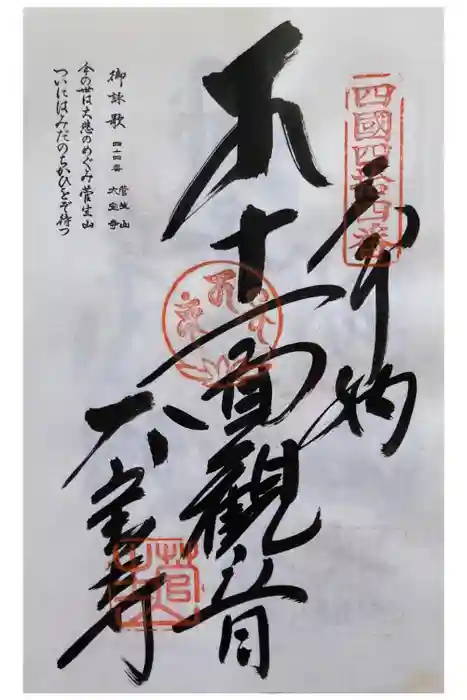 四國四拾四番
奉納
十一面觀音
大宝寺
御詠歌 四十四番 菅生山 大宝寺
今の世は大悲のめぐみ菅生山
ついにはみだのちかひをぞ待つ